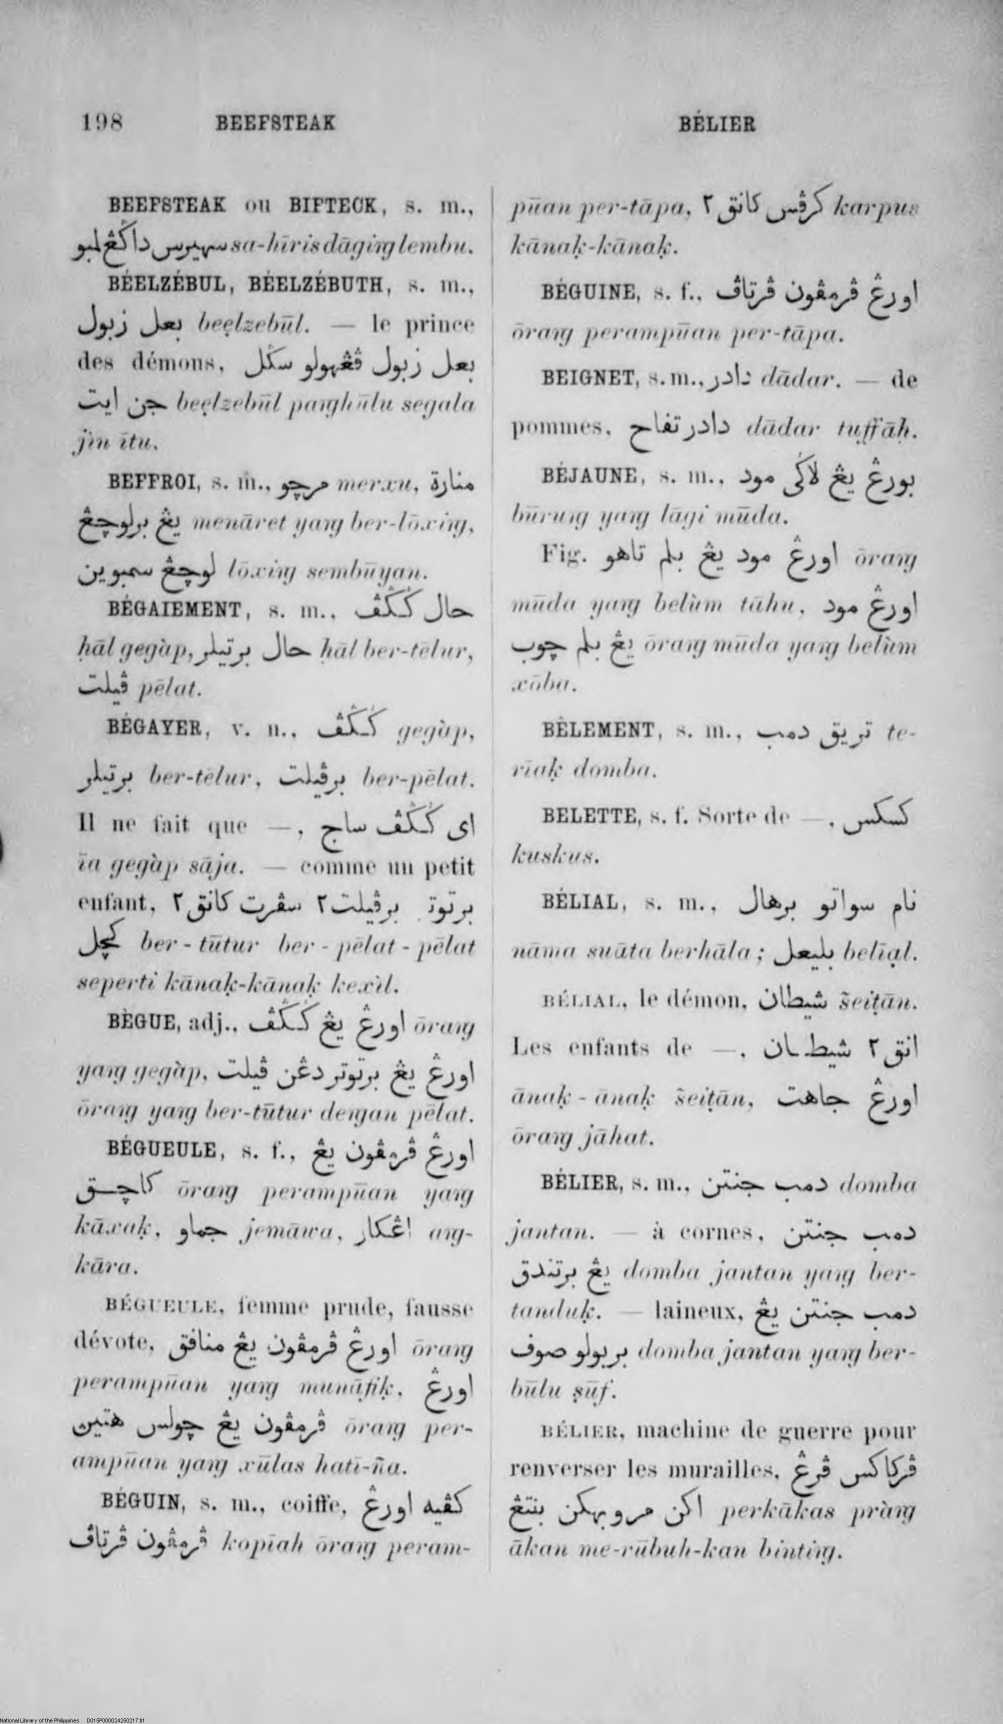 198 BEEFSTEAK BÉLIER
BEEFSTEAK ou BIFTECK, s. m.,
سهيرس داݢڠ لمبو sa-hīris dāging lembu.
BÉELZÉBUL, BÉELZÉBUTH, s. m.,
بعل زبول beęlzebūl. — le prince
des démons, بعل زبول ڤڠهولو سݢل
جن ايت beęlzebūl panghūlu segala
jin ītu.
BEFFROI, s. m., مرچو merxu, منارة
يڠ برلوچڠ menāret yang ber-lōxing,
لوچڠ سمبوين lōxing sembūyan.
BÉGAIEMENT, s. m., حال ݢݢڤ
ḥāl gegàp, حال برتيلر ḥāl ber-tēlur,
ڤيلت pēlat.
BÉGAYER, v. n., ݢݢڤ gegàp,
برتيلر ber-tēlur, برڤيلت ber-pēlat.
Il ne fait que —, اى ݢݢڤ ساج
īa gegàp sāja. — comme un petit
enfant, برتوتر برڤيلت٢ سڤرت كانق٢
كچل ber-tūtur ber-pēlat-pēlat
seperti kānaḳ-kānaḳ kexìl.
BÈGUE, adj., اورڠ يڠ ݢݢڤ ōrang
yang gegàp, اورڠ يڠ برتوتر دڠن ڤيلت
ōrang yang ber-tūtur dengan pēlat.
BÉGUEULE, s. f., اورڠ ڤرمڤون يڠ
كاچق ōrang perampūan yang
kāxaḳ, جماو jemāwa, اڠكار ang-
kāra.
BÉGUEULE, femme prude, fausse
dévote, اورڠ ڤرمڤون يڠ منافق ōrang
perampūan yang munāfiḳ, اورڠ
ڤرمڤون يڠ چولس هتين ōrang per-
ampūan yang xūlas hati-ña.
BÉGUIN, s. m., coiffe, كڤيه اورڠ
ڤرمڤون ڤرتاڤ kopīah ōrang peram-
pūan per-tāpa, كرڤس كانق٢ karpus
kānaḳ-kānaḳ.
BÉGUINE, s. f., اورڠ ڤرمڤون ڤرتاڤ
ōrang perampūan per-tāpa.
BEIGNET, s. m., دادر dādar. — de
pommes, دادر تفاح dādar tuffāḥ.
BÉJAUNE, s. m., بورڠ يڠ لاݢى مود
būrung yang lāgi mūda.
Fig. اورڠ مود يڠ بلم تاهو ōrang
mūda yang belùm tāhu, اورڠ مود
يڠ بلم چوب ōrang mūda yang belùm
xōba.
BÊLEMENT, s. m., تريق دمب te-
rīaḳ domba.
BELETTE, s. f. Sorte de —, كسكس
kuskus.
BÉLIAL, s. m., نام سواتو برهال
nāma suāta berhāla; بليعل belīạl.
BÉLIAL, le démon, شيطان šeiṭān.
Les enfants de —, انق٢ شيطان
ānaḳ-ānaḳ šeiṭān, اورڠ جاهت
ōrang jāhat.
BÉLIER, s. m., دمب جنتن domba
jantan. — à cornes, دمب جنتن
يڠ برتندق domba jantan yang ber-
tanduḳ. — laineux, دمب جنتن يڠ
بربولو صوف domba jantan yang ber-
būlu ṣūf.
BÉLIER, machine de guerre pour
renverser les murailles, ڤركاكس ڤرڠ
اكن مروبهكن بنتڠ perkākas pràng
ākan me-rūbuh-kan binting.
National Library of the Philippines